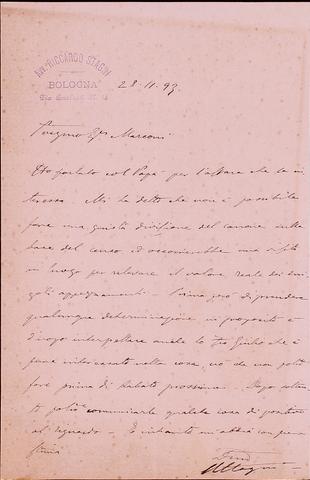 AVV. RICCARDO STAGNI
BOLOGNA
28.11.93
Marconi
Ho parlato col Papà per l'affare che la in-
teressa. Mi ha detto che non è possibile
fare una giusta divisione del canone sulla
base del censo ed occorrerebbe una
in luogo per relevare il valore reale dei sin-
goli appezzamenti. Prima però di prendere
qualunque determinazione in proposito è
d'uopo interpellare anche lo zio Giulio che è
pure interessato nella cosa, ciò che non potrò
fare prima di Sabato prossimo. Dopo soltan-
to potrò comunicarle qualche cosa di positivo
al riguardo. E intanto con piena
stima